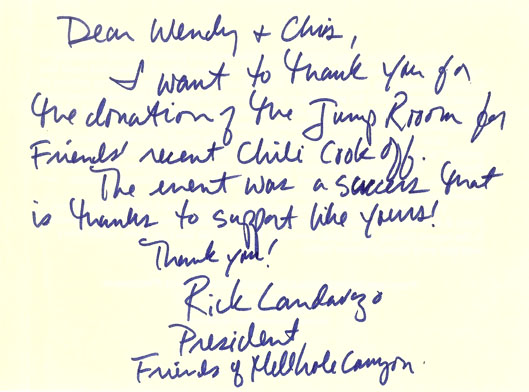 Dear Wendy + Chris,
I want to thank you for
the donation of the Jump Room for
Friends' recent Chili Cook off.
The event was a success that
is thanks to support like yours!
Thank you!
Rick
President
Friends of Hellhole Canyon.